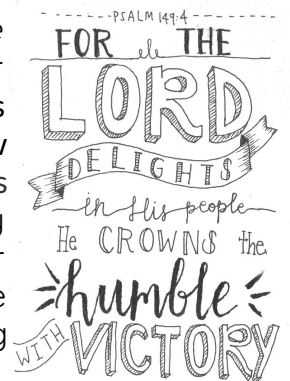 PSALM 149:4
FOR THE
LORD
DELIGHTS
in His people
He CROWNS the
humble
WITH VICTORY